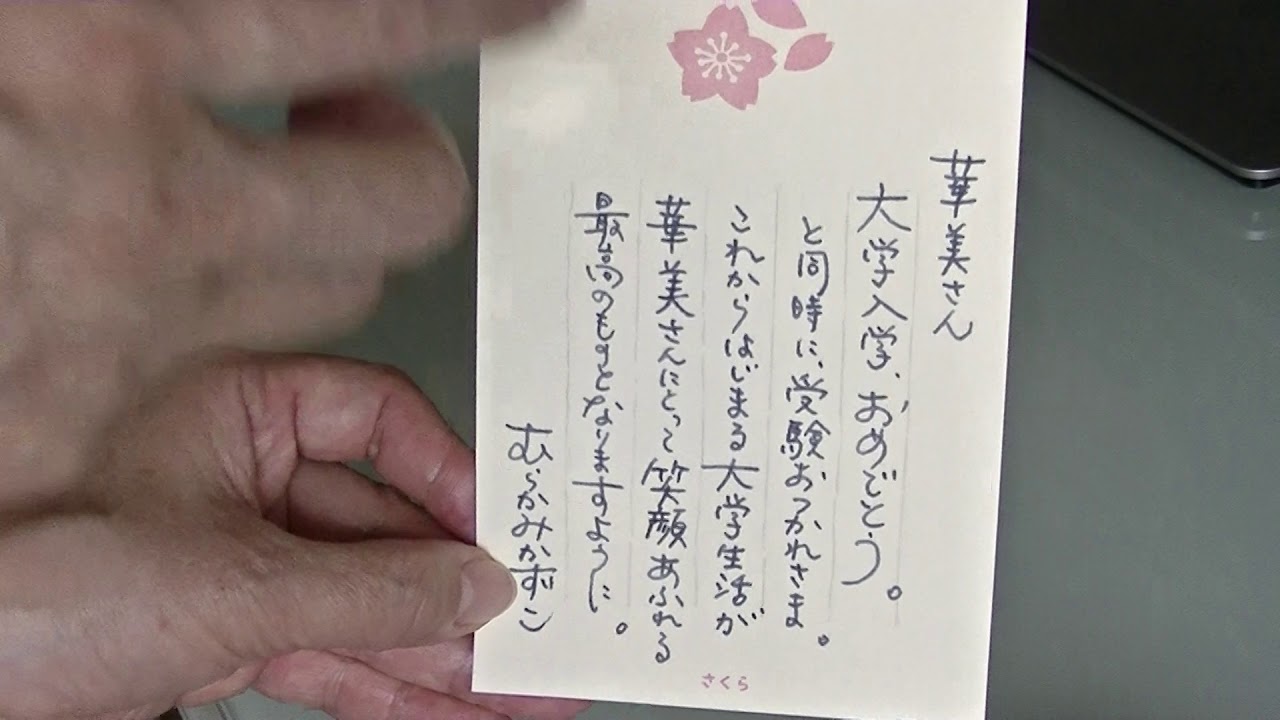 華美さん
大学入学、おめでとう。
と同時に、受験おつかれさま。
これからはじまる大学生活が
華美さんにとって笑顔あふれる
最高のものとなりますように。
むらかみかずこ
さくら